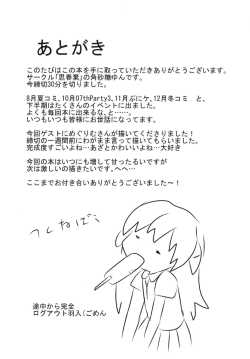 あとがき
このたびはこの本を手に取っていただきありがとうございます。
サークル「思春業」の角砂糖ゆんです。
今締切30分を切りました。
8月夏コミ、10月07thParty3、11月ぷにケ、12月冬コミ と、
下半期はたくさんのイベントに出ました。
よくも毎回本に出来るな、と……。
いつもいつも皆様にお世話になっております。
今回ゲストにめぐりむさんが描いてくださりました！
締切の一週間前にわがまま言って描いてもらいました。
完成度すごいよね…あざとかわいいよね…大好き
今回の本はいつにも増して甘ったるいですが
次は激しいの描きたいです。へへ…
ここまでお付き合いありがとうございました～！
つくねば
途中から完全
ログアウト羽入（ごめん